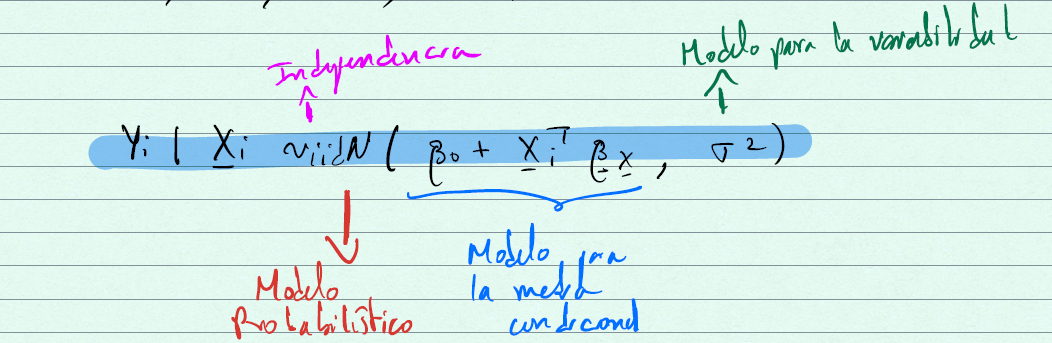 Independencia
Modelo para la variabilidad
Yi | Xi ~iid N ( β0 + Xi^T βx , σ² )
Modelo
Probabilístico
Modelo para
la media
condicional